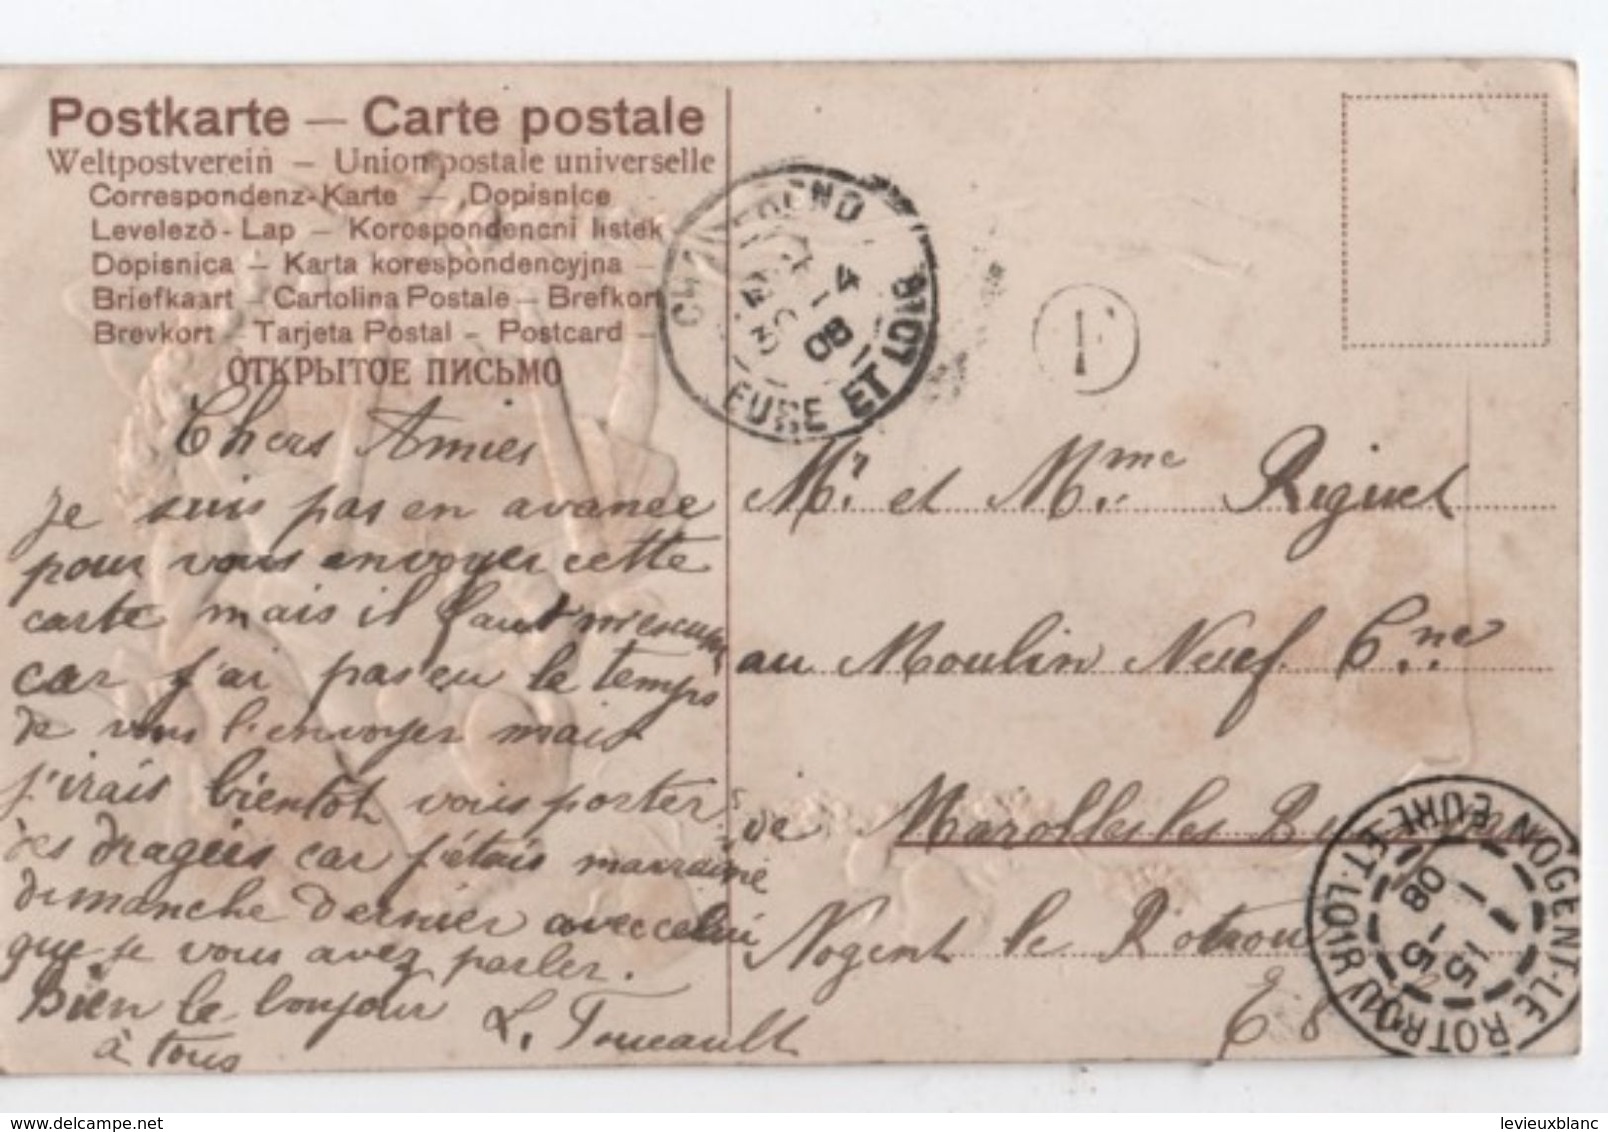 Postkarte — Carte postale
Weltpostverein – Union postale universelle
Correspondenz-Karte — Dopisnice
Levelezö-Lap – Korospondencni listek
Dopisnica – Karta korespondencyjna –
Briefkaart – Cartolina Postale – Brefkort
Brevkort – Tarjeta Postal – Postcard –
ОТКРЫТОЕ ПИСЬМО
Chers Amies
je suis pas en avance
pour vous envoyer cette
carte mais il faut mescuser
car j'ai pas eu le temps
de vous l'envoyer mais
j'irais bientot vous porter
des drageés car j'étais marraine
dimanche dernier avec celui
que je vous avez parler.
Bien le bonjour
à tous
L. Foucault
EURE ET LOIR
4 - 08
F
Mr. et Mme Riguet
au Moulin Neuf Cne
de Marolles les
Nogent le Rotrou
E
NOGENT-LE-ROTROU EURE-ET-LOIR
15 - 5
08
levieuxblanc